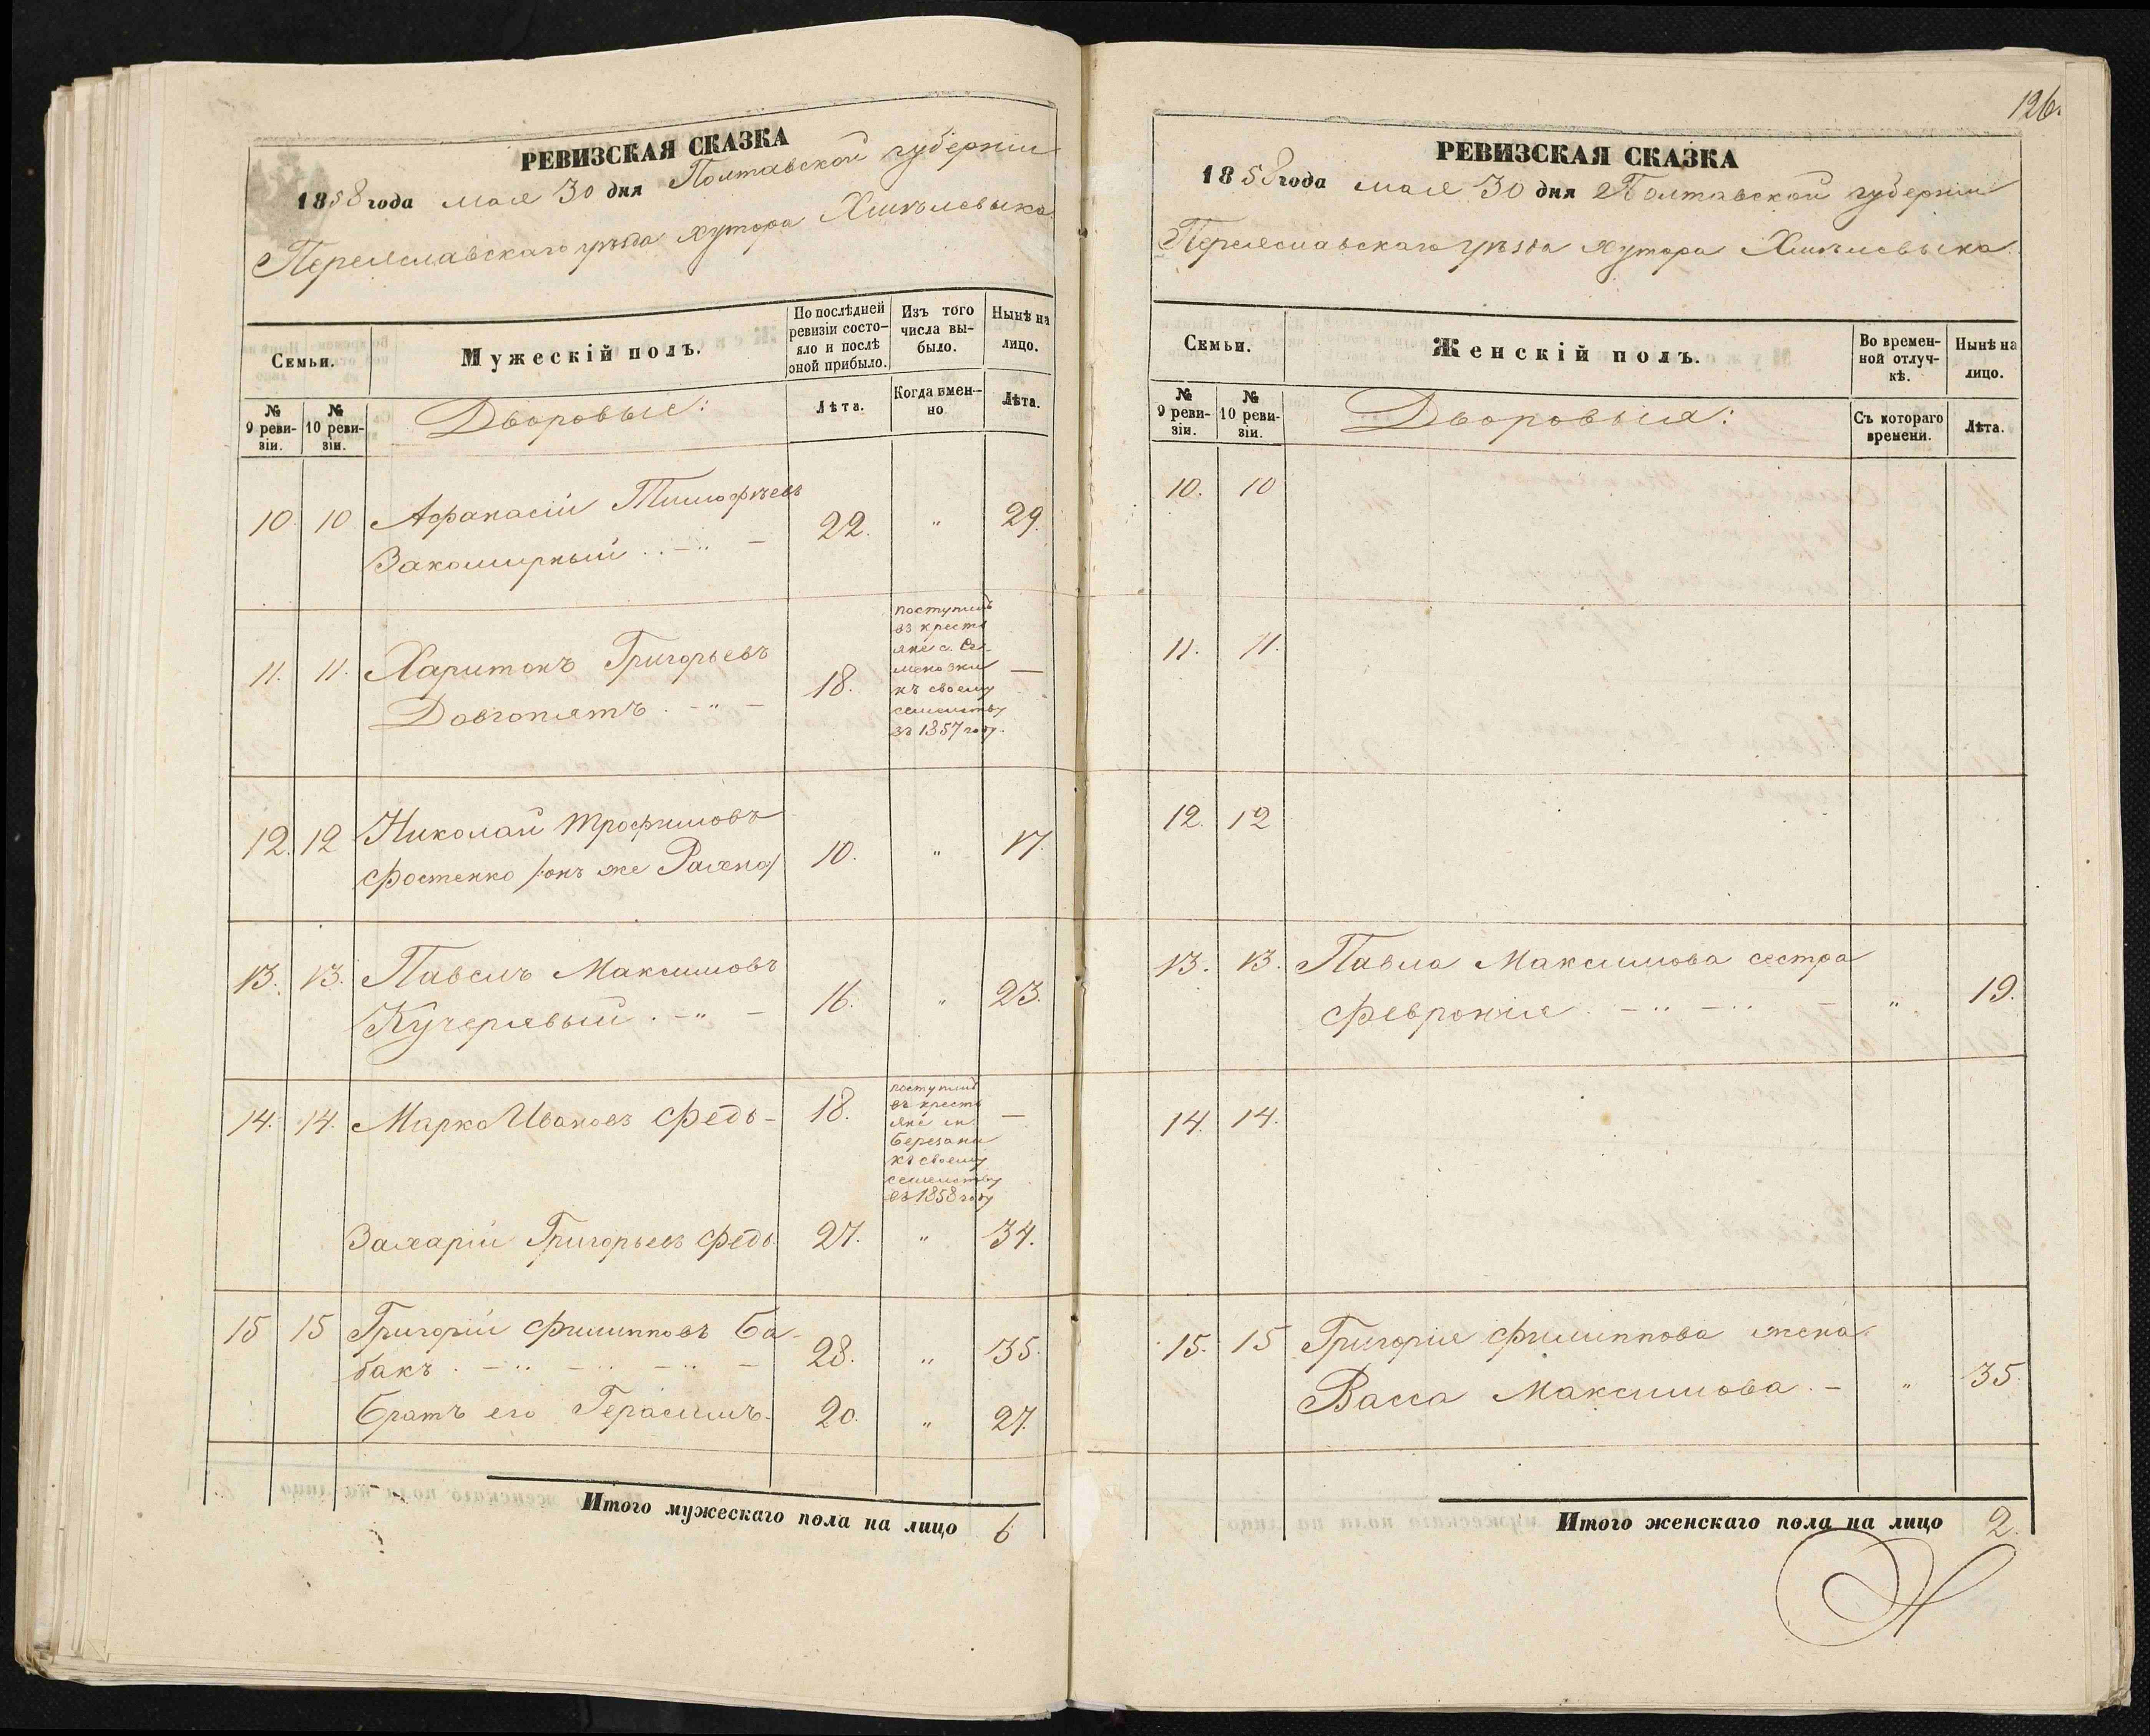 РЕВИЗСКАЯ СКАЗКА
1858 года мая 30 дня Полтавской губерніи
Переяславскаго уѣзда хутора
Семьи.
Мужескій полъ.
По послѣдней ревизіи состояло и послѣ оной прибыло.
Изъ того числа выбыло.
Нынѣ на лицо.
№ 9 ревизіи.
№ 10 ревизіи.
Дворовые:
Лѣта.
Когда именно
Лѣта.
10. 10 Афанасій Тимофѣевъ
Закомирный . . – " – 22. " 29.
11. 11. Харитонъ Григорьевъ
Довгопятъ . – " – 18. –
поступилъ
въ кресть
яне с. Се
меновки
къ своему
семейству
въ 1857 году.
12. 12 Николай Трофимовъ
Фостенко /: онъ же Рахно/ 10. " 17.
13. 13. Павелъ Максимовъ
Кучерявый . – " – 16. " 23.
14. 14. Марко Ивановъ Федь – 18. –
поступилъ
въ кресть
яне м.
Березани
къ своему
семейству
въ 1858 году
Захарій Григорьевъ Федь 27. " 34.
15 15 Григорій Филипповъ Ба-
бакъ . – " – " – " – 28. " 35.
Братъ его Герасимъ. 20. " 27.
Итого мужескаго пола на лицо 6
126.
РЕВИЗСКАЯ СКАЗКА
1858 года мая 30 дня Полтавской губерніи
Переяславскаго уѣзда хутора
Семьи.
Женскій полъ.
Во временной отлучкѣ.
Нынѣ на лицо.
№ 9 ревизіи.
№ 10 ревизіи.
Дворовыя:
Съ котораго времени.
Лѣта.
10. 10
11. 11.
12. 12
13. 13. Павла Максимова сестра
Февронія . – " – " – " 19.
14. 14.
15. 15 Григорія Филиппова жена
Васса Максимова . – " 35.
Итого женскаго пола на лицо 2.